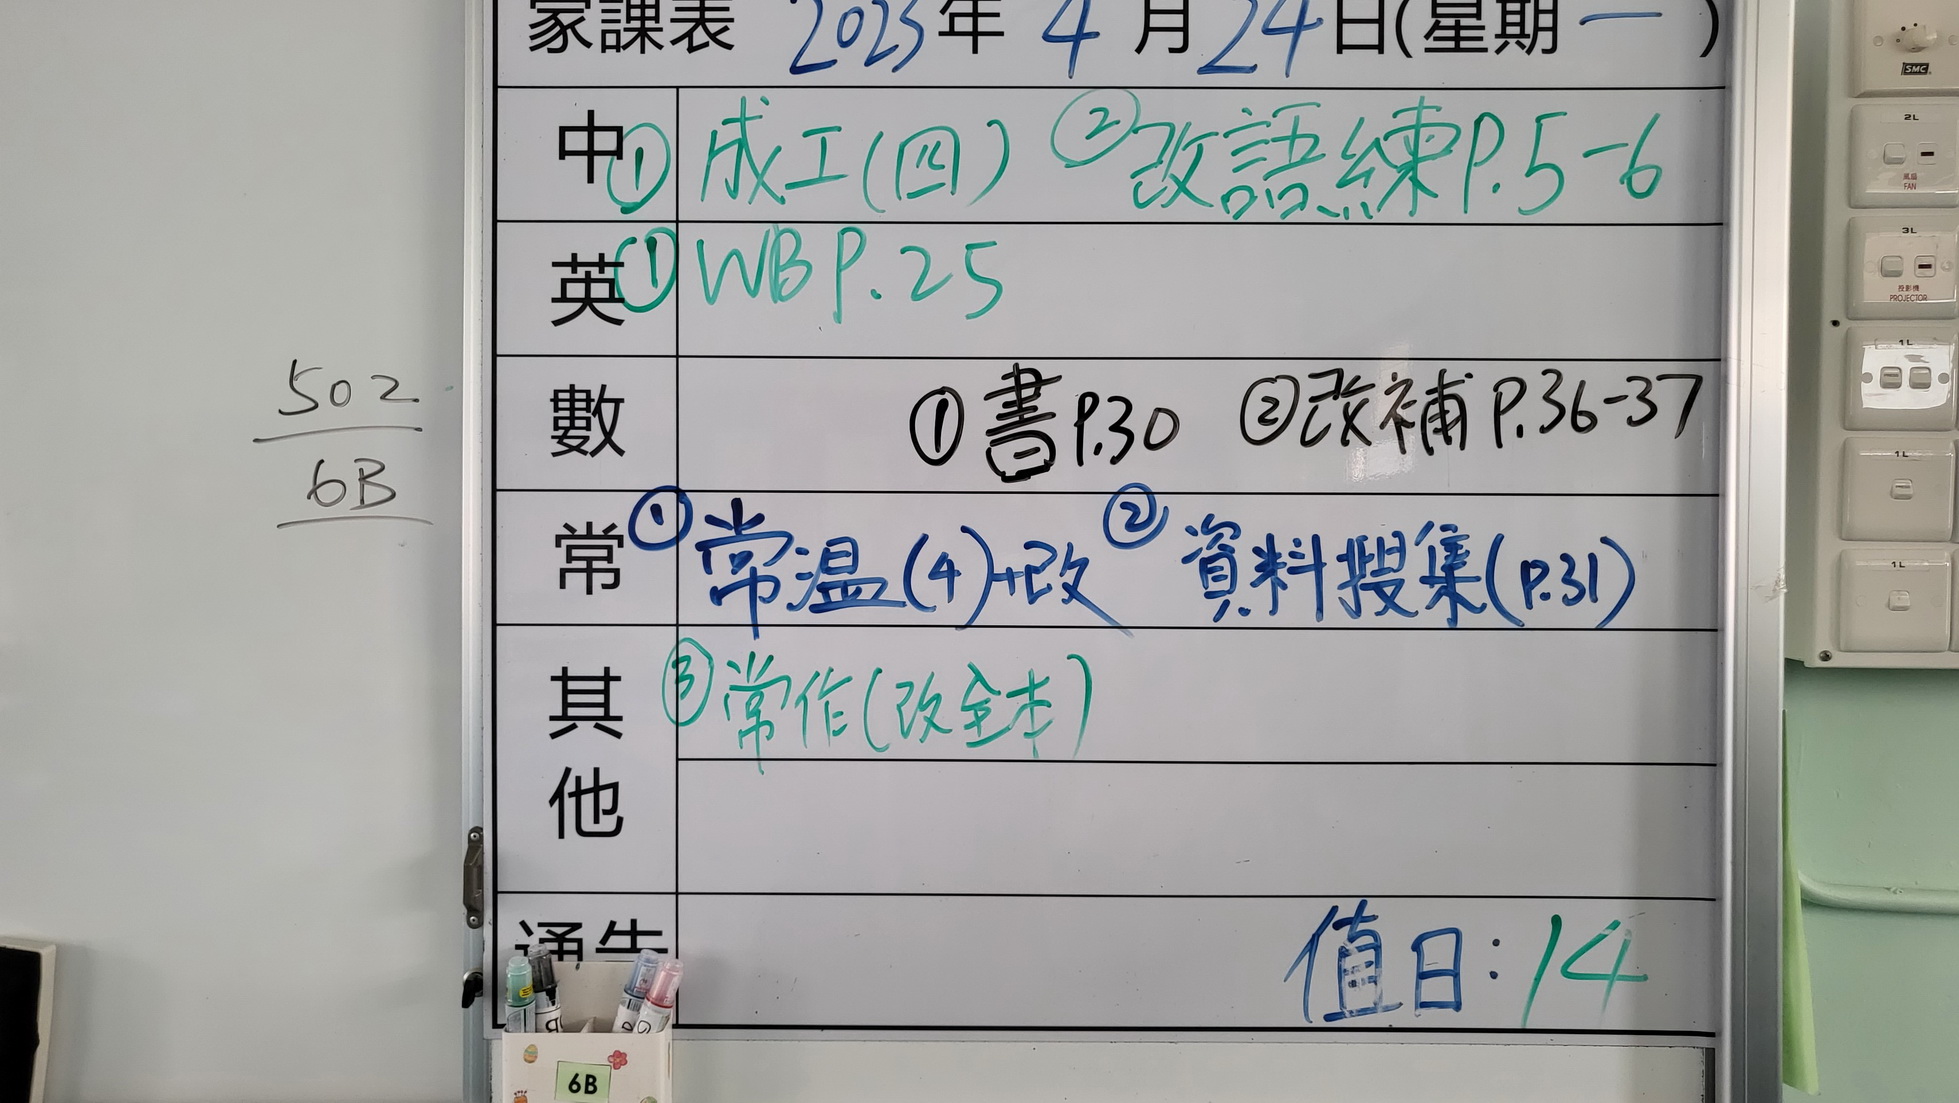 家課表 2023年 4 月 24 日(星期 一 )
中 ① 成工(四) ② 改語練P.5-6
英 ① WB P.25
數 ① 書P.30 ② 改補P.36-37
常 ① 常溫(4)+改 ② 資料搜集(P.31)
其他 ③ 常作(改全本)
通告
值日:14
502
6B
6B
SMC
2L
風扇
FAN
3L
投影機
PROJECTOR
1L
1L
1L